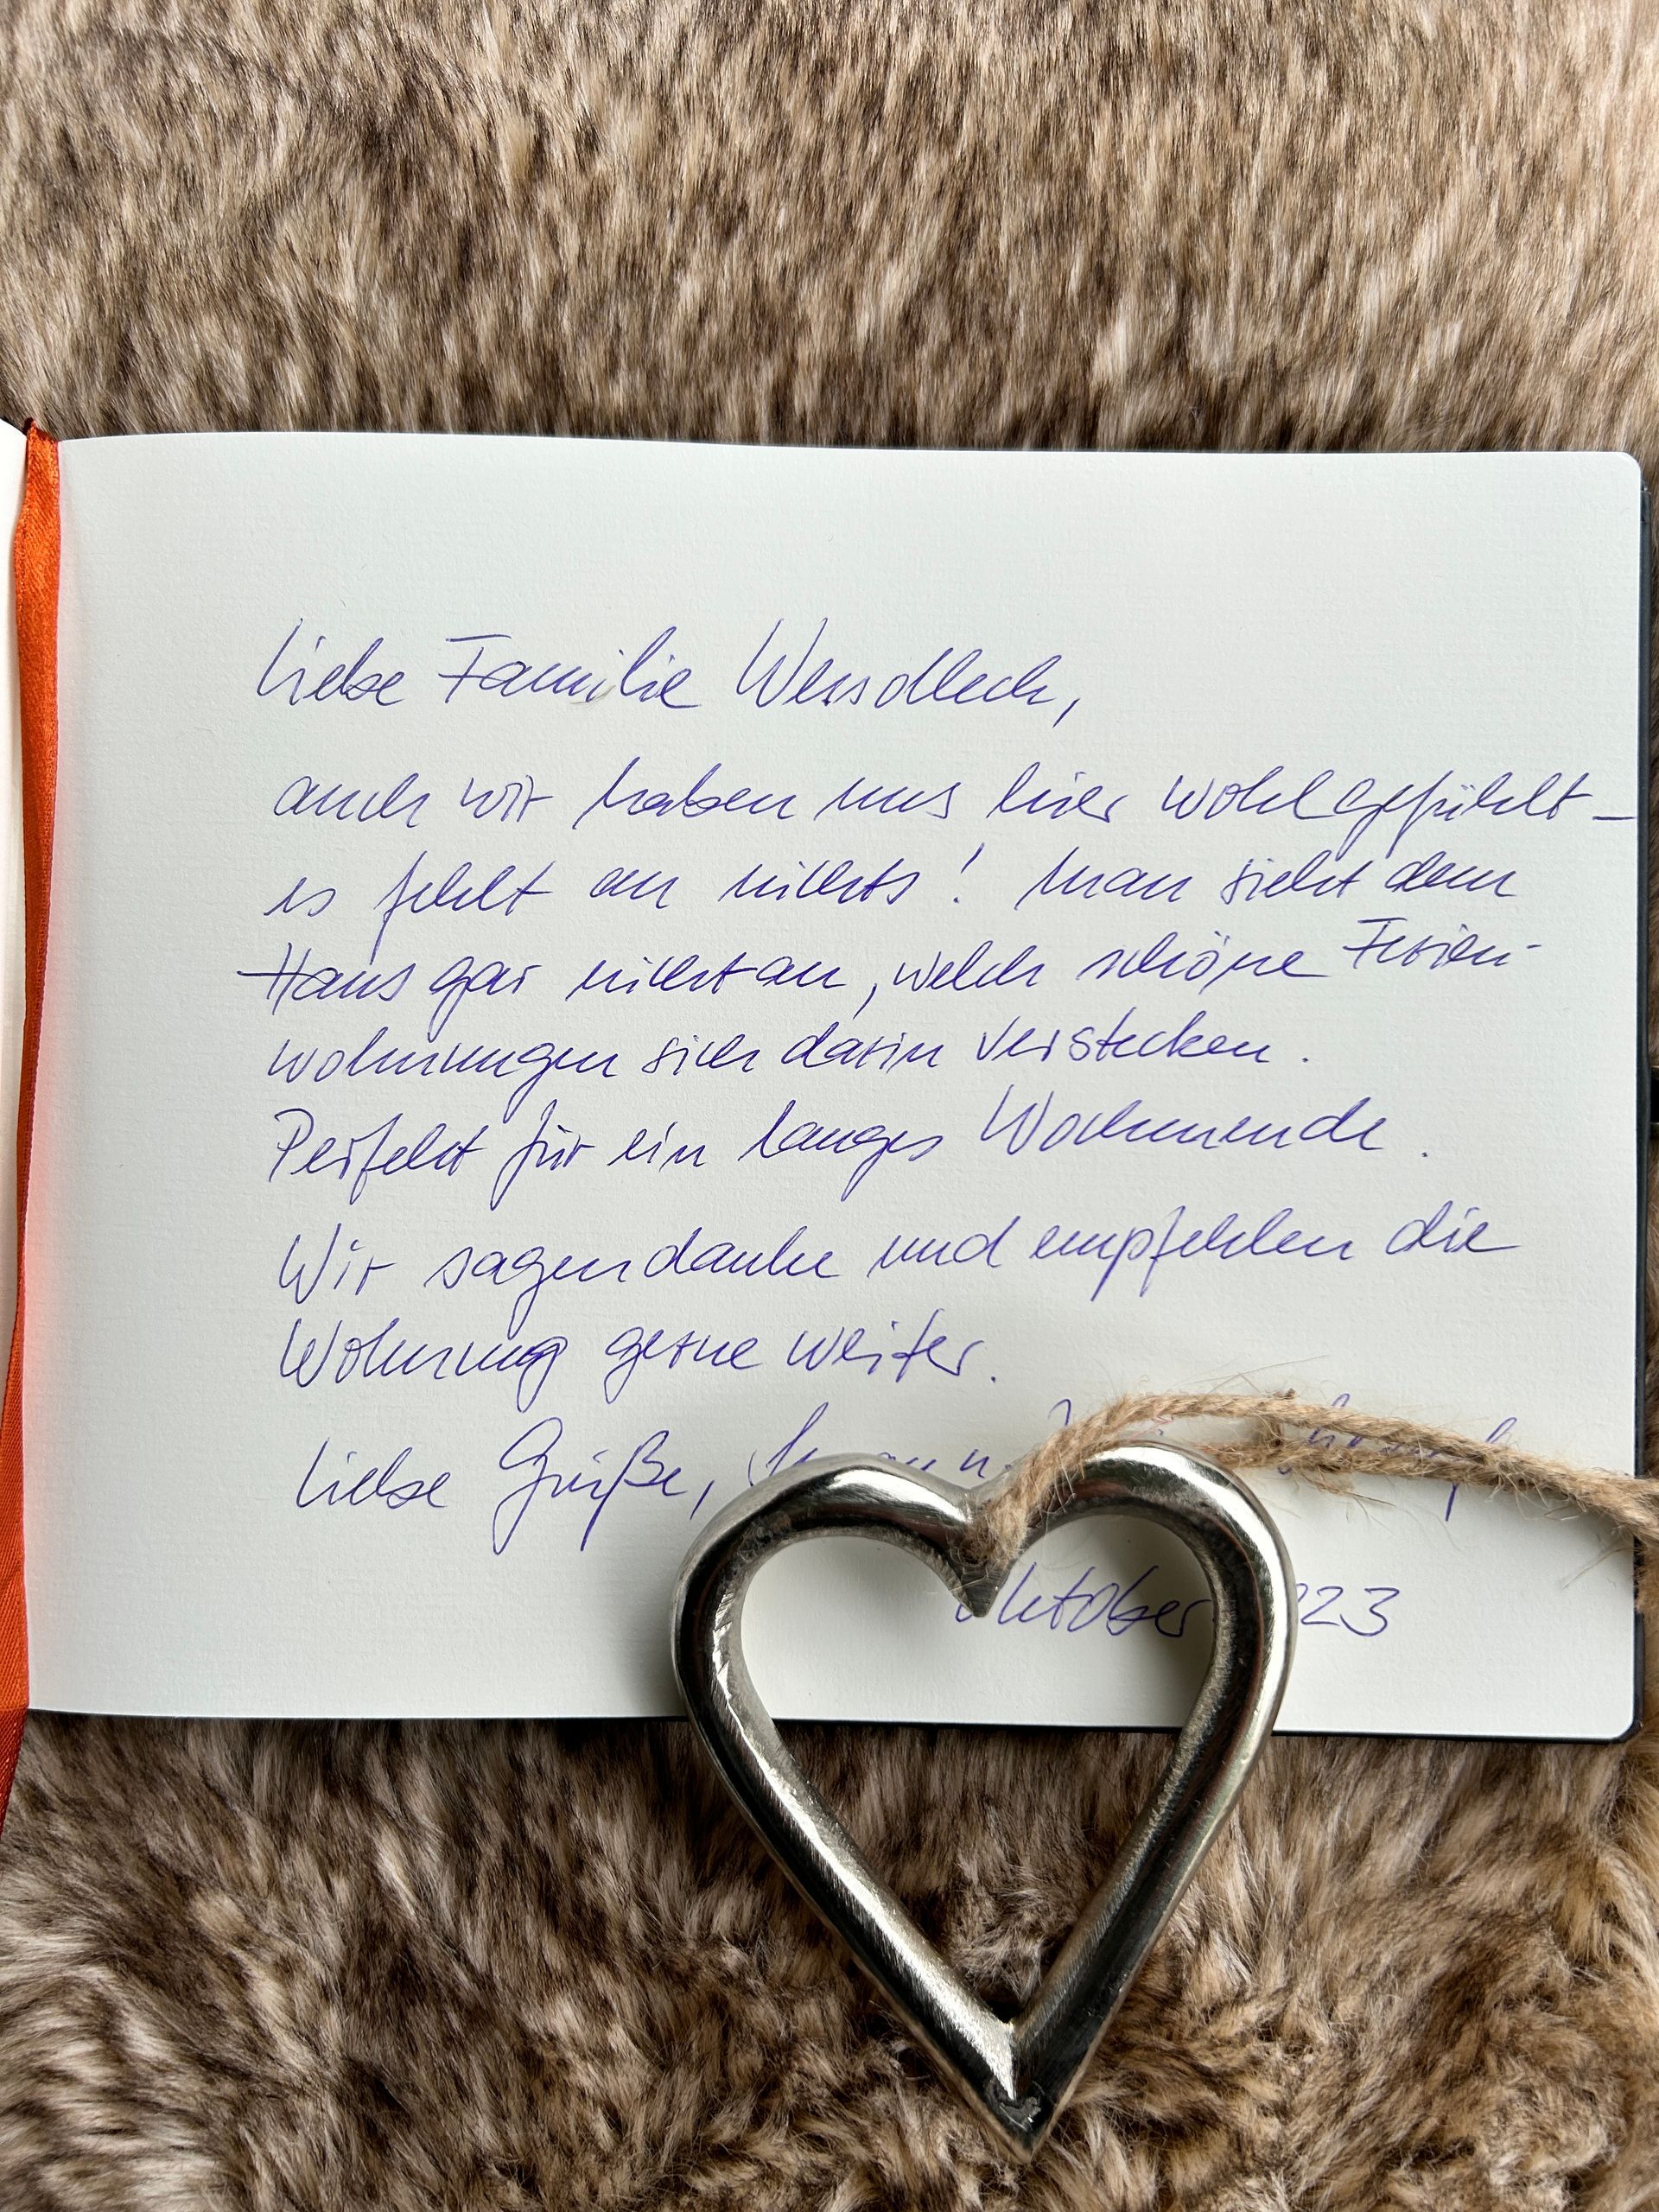 Liebe Familie
auch wir haben uns hier wohlgefühlt –
es fehlt an nichts! Man sieht dem
Haus gar nicht an, welch schöne Ferien-
wohnungen sich darin verstecken.
Perfekt für ein langes Wochenende.
Wir sagen danke und empfehlen die
Wohnung gerne weiter.
Liebe Grüße,
Oktober 23